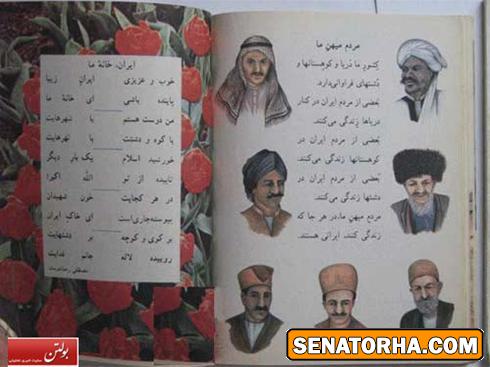 مردم میهن ما
کشور ما دریا و کوهستانها و
دشتهای فراوانی‌دارد.
بعضی از مردم ایران در کنار
دریاها زندگی می‌کنند.
بعضی از مردم ایران در
کوهستانها زندگی می‌کنند.
بعضی از مردم ایران در
دشتها زندگی می‌کنند.
مردم میهن ما،در هر جا که
زندگی کنند، ایرانی هستند.
ایران، خانهٔ ما
خوب و عزیزی ایران زیبا
پاینده باشی ای خانهٔ ما
من دوست هستم با شهرهایت
با کوه و دشتت با نهرهایت
خورشید اسلام یک بار دیگر
تابیده از تو الله اکبر
در هر کجایت خون شهیدان
پیوسته‌جاری‌است ای خاک ایران
بر کوی و کوچه بر دشتهایت
روییده لاله جانم فدایت
مصطفی رحماندوست
بولتن
SENATORHA.COM